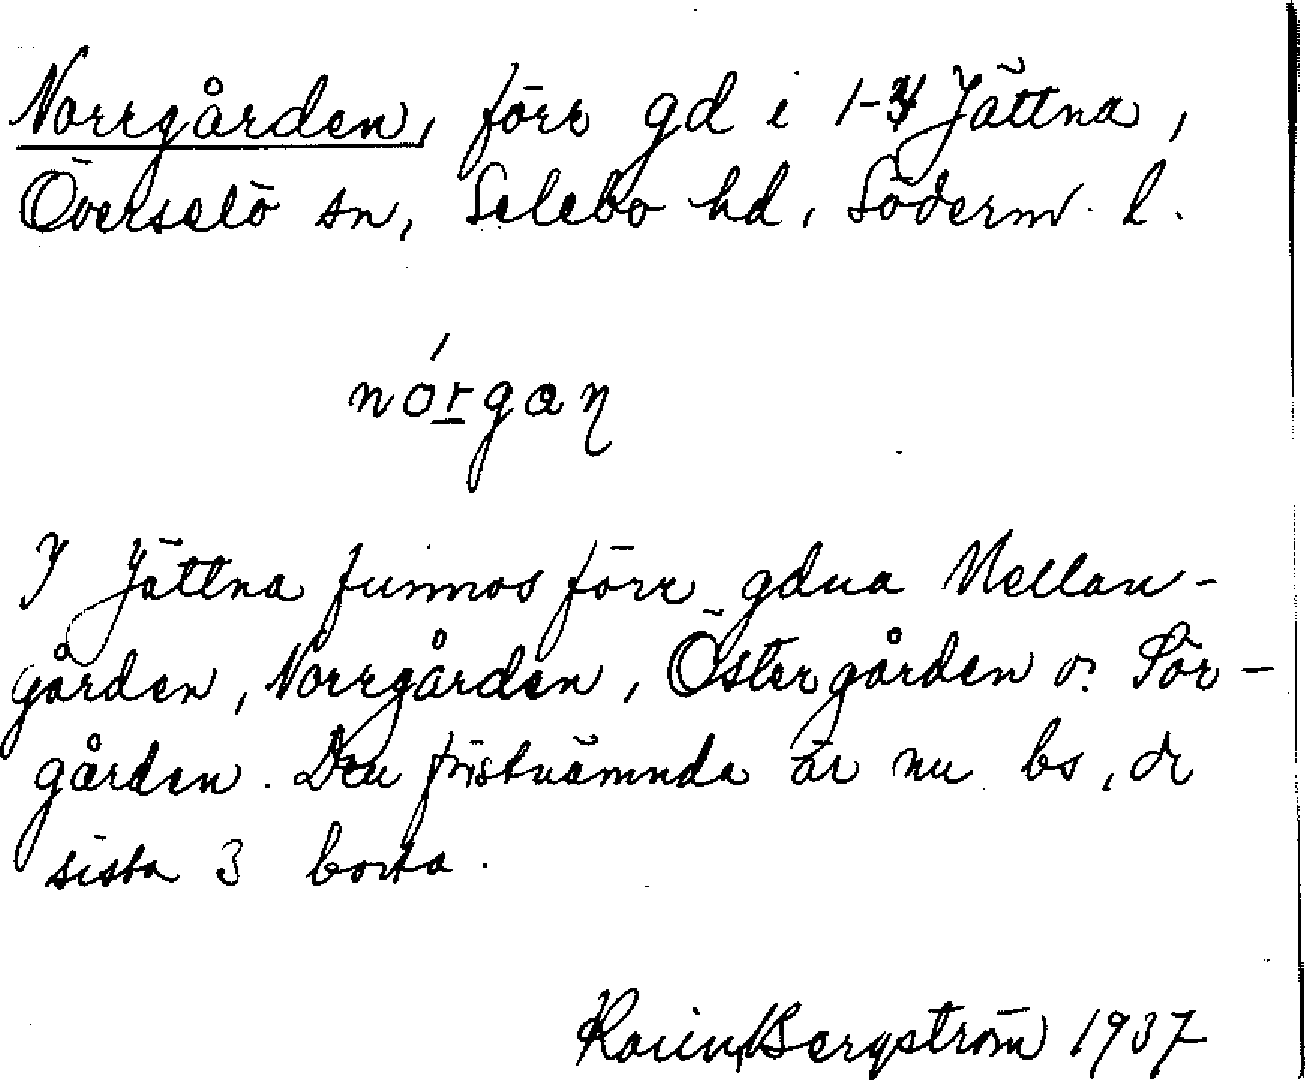 Norrgården, förr gd i 1-4 Jättna,
Överselö sn, Selebo hd, Söderm. l.
nórgaŋ
I Jättna funnos förr gdna Mellan-
gården, Norrgården, Östergården o. Sör-
gården. Den förstnämnda är nu bs, de
sista 3 borta.
Karin Bergström 1937